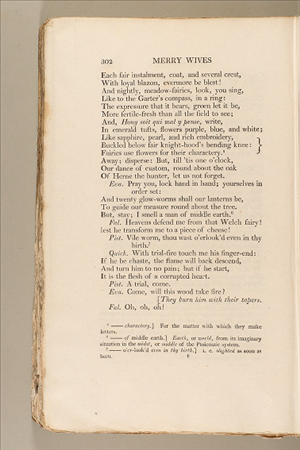 302 MERRY WIVES
Each fair instalment, coat, and several crest,
With loyal blazon, evermore be blest!
And nightly, meadow-fairies, look, you sing,
Like to the Garter's compass, in a ring:
The expressure that it bears, green let it be,
More fertile-fresh than all the field to see;
And, Hony soit qui mal y pense, write,
In emerald tufts, flowers purple, blue, and white;
Like sapphire, pearl, and rich embroidery,
Buckled below fair knight-hood's bending knee: }
Fairies use flowers for their charactery.⁴
Away; disperse: But, till 'tis one o'clock,
Our dance of custom, round about the oak
Of Herne the hunter, let us not forget.
Eva. Pray you, lock hand in hand; yourselves in
order set:
And twenty glow-worms shall our lanterns be,
To guide our measure round about the tree.
But, stay; I smell a man of middle earth.⁶
Fal. Heavens defend me from that Welch fairy!
lest he transform me to a piece of cheese!
Pist. Vile worm, thou wast o'erlook'd even in thy
birth.⁷
Quick. With trial-fire touch me his finger-end:
If he be chaste, the flame will back descend,
And turn him to no pain; but if he start,
It is the flesh of a corrupted heart.
Pist. A trial, come.
Eva. Come, will this wood take fire?
[They burn him with their tapers.
Fal. Oh, oh, oh!
—— charactery.] For the matter with which they make
letters.
—— of middle earth.] Earth, or world, from its imaginary
situation in the midst, or middle of the Ptolemaic system.
—— o'er-look'd even in thy birth.] i. e. slighted as soon as
born.